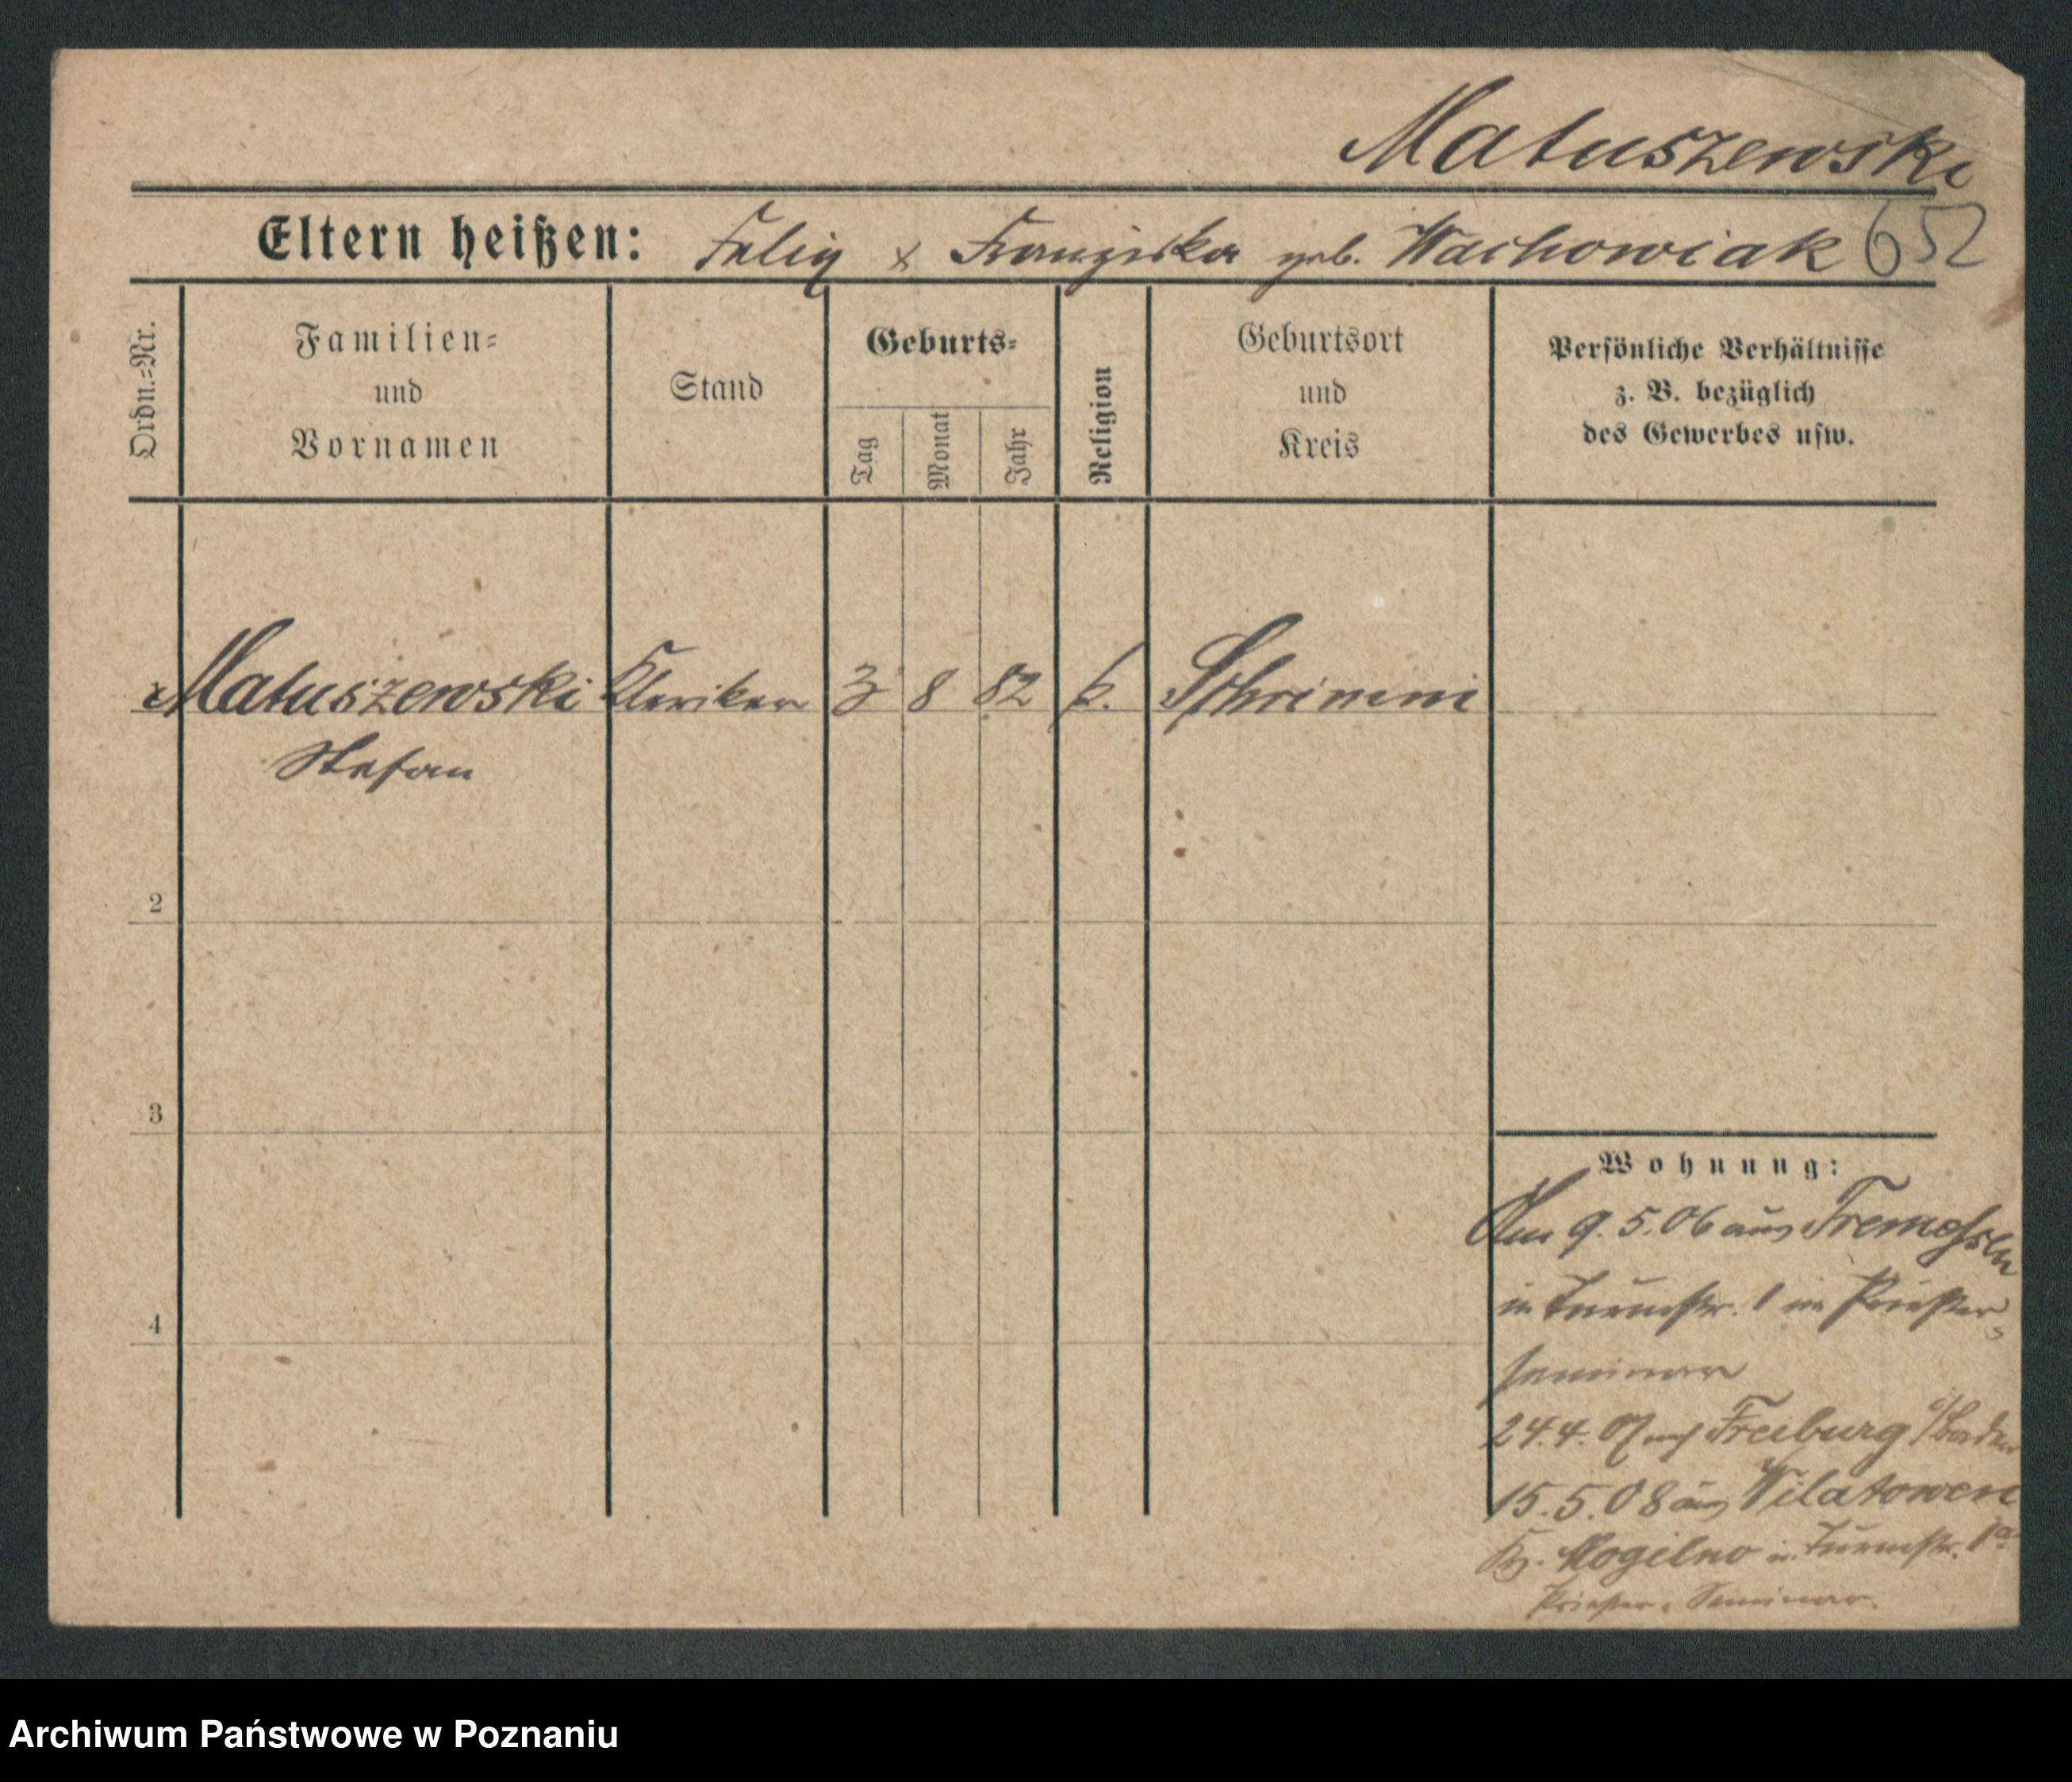 Matuszewski
Eltern heißen: Felix & Franziska geb. Wachowiak 652
Ordn.-Nr.
Familien-
und
Vornamen
Stand
Geburts-
Tag
Monat
Jahr
Religion
Geburtsort
und
Kreis
Persönliche Verhältnisse
z. B. bezüglich
des Gewerbes usw.
Matuszewski Kleriker 3 8 82 k. Schrimm
Stefan
2
3
4
Wohnung:
Am 9.5.06 aus Tremessen
in Turmstr. 1 im Priester-
seminar
24.4.07 nach Freiburg i/Baden
15.5.08 aus Wilatowen
Kr. Mogilno n. Turmstr. 1a
Priester-Seminar.
Archiwum Państwowe w Poznaniu